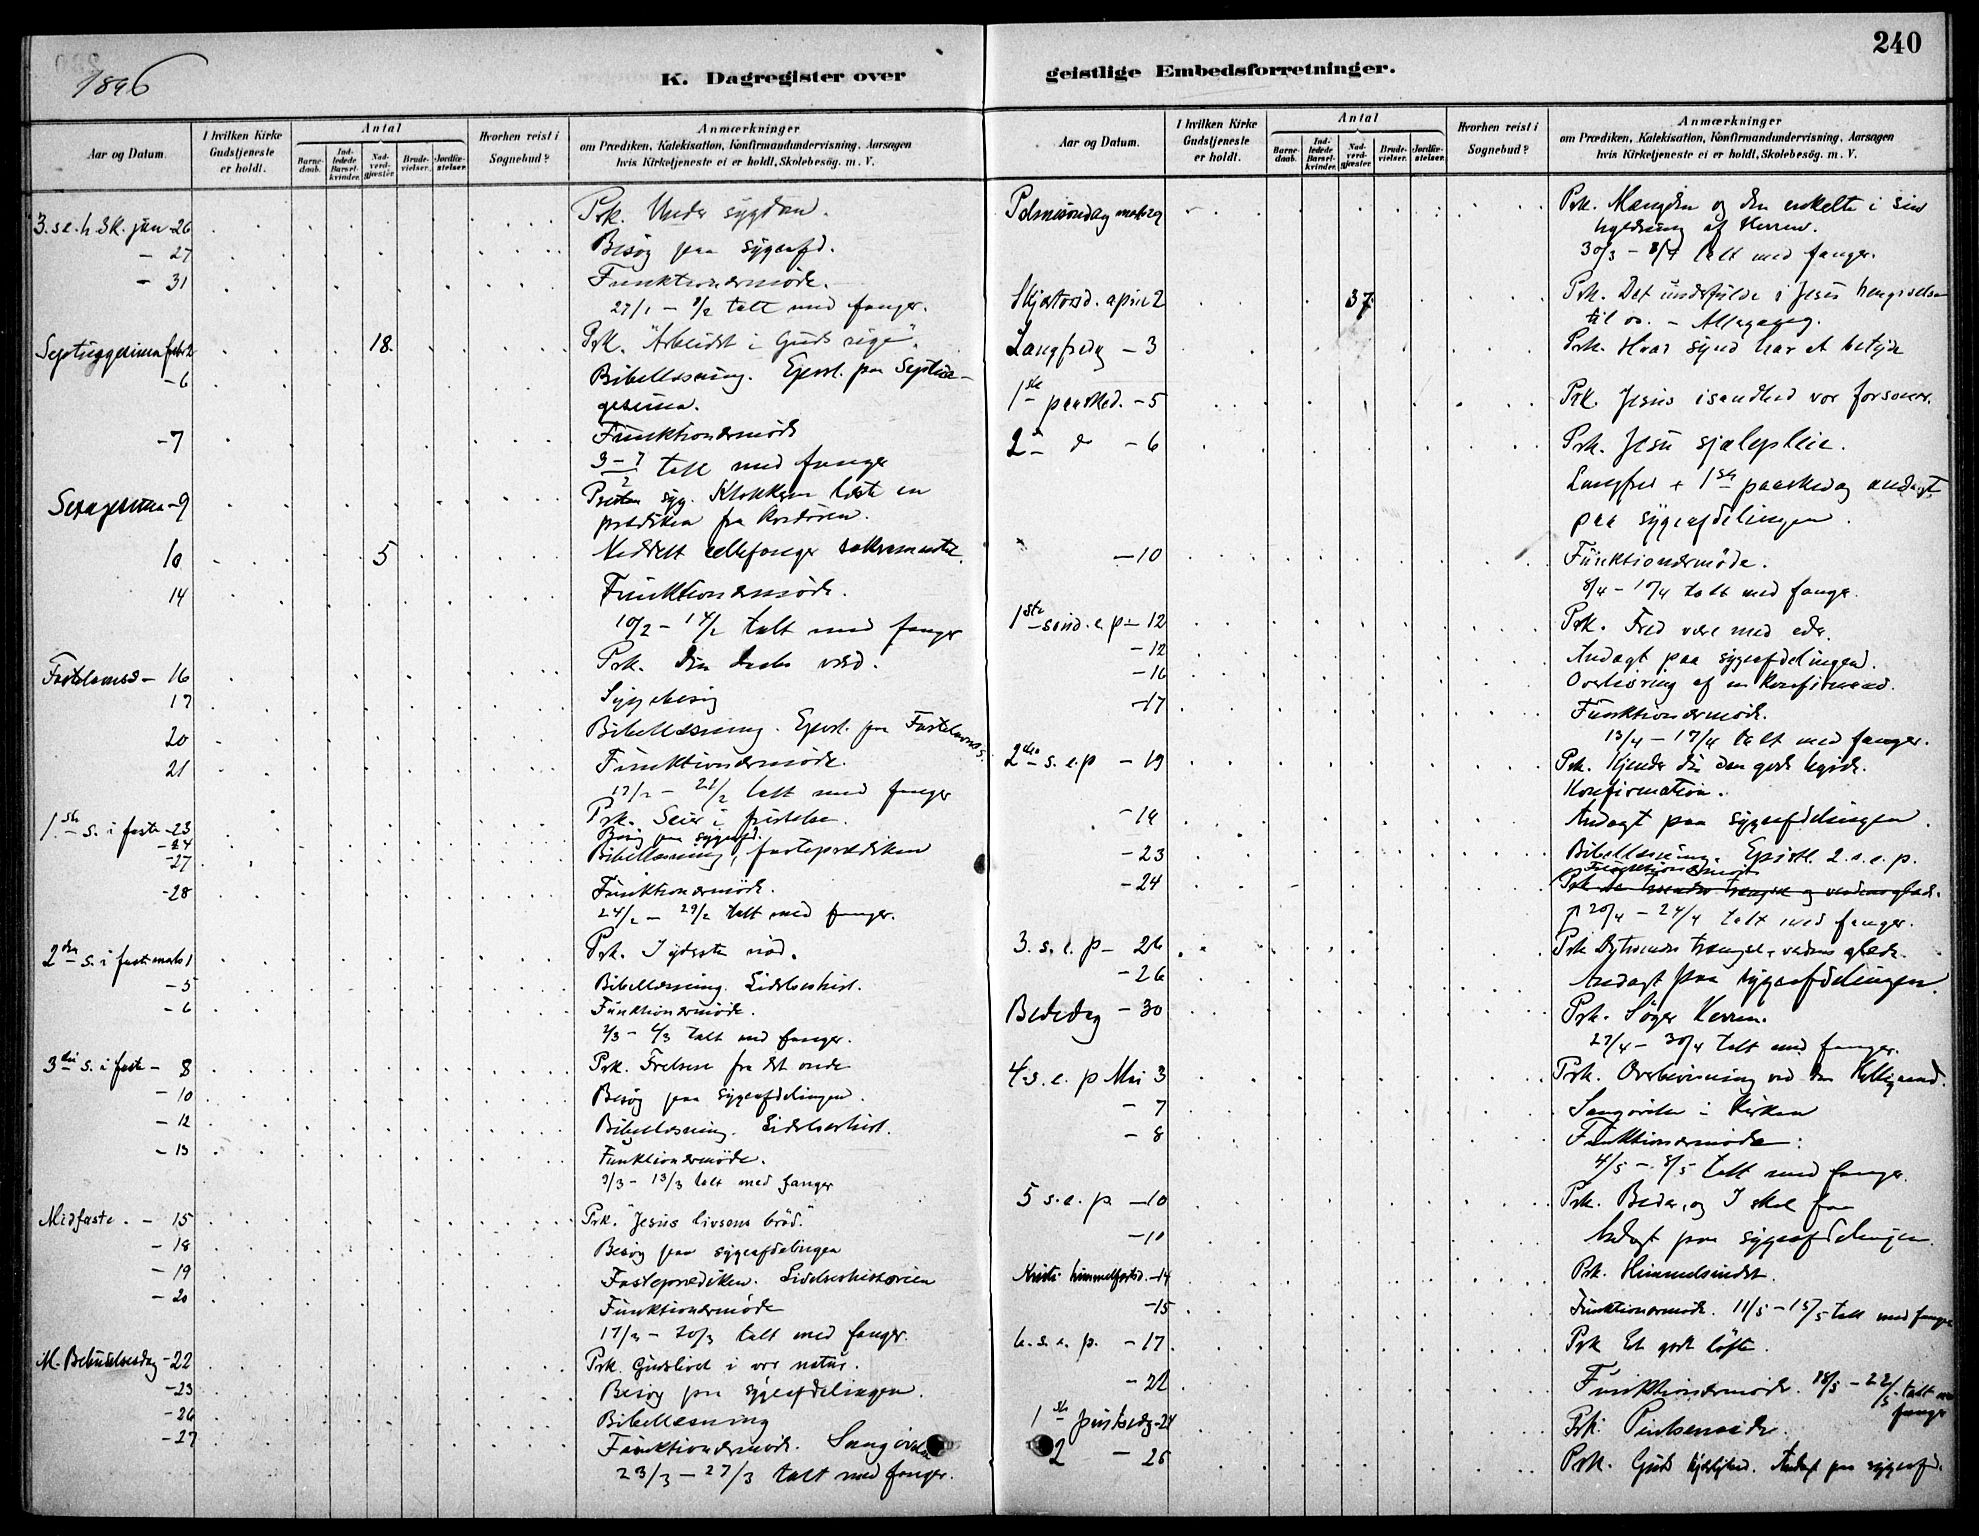 240
1896
K. Dagregister over
geistlige Embedsforretninger.
Aar og Datum.
I hvilken Kirke Gudstjeneste er holdt.
Antal
Barne-daab.
Ind-ledede Barsel-kvinder.
Nad-verd-gjæster.
Brude-vielser.
Jordfæ-stelser.
Hvorhen reist i Sognebud?
Anmærkninger
om Prædiken, Katekisation, Konfirmandundervisning, Aarsagen
hvis Kirketjeneste ei er holdt, Skolebesög. m. V.
3. s. e. h. 3 k. jan - 26 Prk. Under sygdom.
- 27 Besøg paa sygeafd.
- 31 Funktionærmöde.
27/1 - 1/2 talt med fanger.
Septuagesima febr 2 18. Prk. "Arbeidet i Guds rige".
- 6 Bibellæsning. Epist. paa Septua-
gesima.
- 7 Funktionærmöde
3 - 7/2 talt med fanger
Sexagesima - 9 Presten syg. Klokkeren læste en
prædiken fra Kordören.
10 5 Meddelt cellefanger sakramentet.
14 Funktionærmöde.
10/2 - 14/2 talt med fanger
Fastelavnss - 16 Prk. Din daabs værd.
17 Sygebesög
20 Bibellæsning. Epist. paa Fastelavnss.
21 Funktionærmöde.
17/2 - 21/2 talt med fanger
1ste s. i faste - 23 Prk. Seier i fristelse.
- 24 Besøg paa sygeafd.
- 27 Bibellæsning, fasteprædiken
- 28 Funktionærmöde.
24/2 - 29/2 talt med fanger.
2den s. i faste marts 1 Prk. I yderste nöd.
- 5 Bibellæsning. Lidelseshist.
- 6 Funktionærmöde.
2/3 - 6/3 talt med fanger.
3die s. i faste - 8 Prk. Frelsen fra det onde
- 10 Besøg paa sygeafdelingen.
- 12 Bibellæsning. Lidelseshist.
- 13 Funktionærmöde.
9/3 - 13/3 talt med fanger
Midfaste. - 15 Prk. "Jesus livsens bröd."
- 18 Besøg paa sygeafdelingen
- 19 Fasteprædiken. Lidelseshistorien
- 20 Funktionærmöde
17/3 - 20/3 talt med fanger.
M. Bebudelsesdag - 22 Prk. Gudslivet i vor natur.
- 23 Besøg paa sygeafdelingen.
- 26 Bibellæsning
- 27 Funktionærmöde. Sangövelse
23/3 - 27/3 talt med fanger.
Aar og Datum.
I hvilken Kirke Gudstjeneste er holdt.
Antal
Barne-daab.
Ind-ledede Barsel-kvinder.
Nad-verd-gjæster.
Brude-vielser.
Jordfæ-stelser.
Hvorhen reist i Sognebud?
Anmærkninger
om Prædiken, Katekisation, Konfirmandundervisning, Aarsagen
hvis Kirketjeneste ei er holdt, Skolebesög. m. V.
Palmesöndag marts 29 Prk. Mængden og den enkelte i sin
hyldning af Herren.
30/3 - talt med fanger.
Skjærtorsd. april 2 37. Prk. Det underfulde i Jesus hengivelse
til os. - Altergang.
Langfredag - 3 Prk. Hvad synd har at betyde
1ste paasked. - 5 Prk. Jesus isandhed vor forsoner.
2den do - 6 Prk. Jesu sjælepleie.
Langfred + 1ste paaskedag andagt
paa sygeafdelingen.
- 10 Funktionærmöde.
8/4 - 10/4 talt med fanger.
1ste sönd. e. p - 12 Prk. Fred være med eder.
- 12 Andagt paa sygeafdelingen.
- 16 Overhöring af en konfirmand.
- 17 Funktionærmöde.
13/4 - 17/4 talt med fanger.
2den s. e. p - 19 Prk. Kjender du den gode hyrde.
Konfirmation.
- 19 Andagt paa sygeafdelingen.
- 23 Bibellæsning. Epistl. 2. s. e. p.
- 24 Funktionærmöde
20/4 - 24/4 talt med fanger.
3. s. e. p - 26 Prk. trængsel, verdens glæde.
- 26 Andagt paa sygeafdelingen.
Bededag - 30 Prk. Söger Herren.
27/4 - 30/4 talt med fanger.
4. s. e. p Mai 3 Prk. Overbevisning ved den Helligaand.
- 7 Sangövelse i Kirken
- 8 Funktionærmöde.
4/5 - 8/5 talt med fanger.
5 s. e. p. - 10 Prk. Beder, og I skal faa
- 10 Andagt paa sygeafdelingen.
Kristi himmelfartsd. - 14 Prk. Himmelsindet.
- 15 Funktionærmöde. 11/5 - 15/5 talt med fanger
6. s. e. p. - 17. Prk. Et godt löfte.
- 22 Funktionærmöde. 18/5 - 22/5 talt med
fanger
1ste pintsedag - 24 Prk. Pintsens
2 - 25 Prk. Guds kjærlighed. Andagt paa sygeafd.